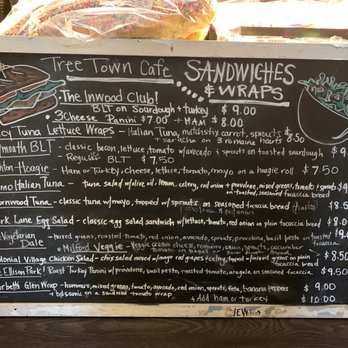 Tree Town Cafe SANDWICHES
& WRAPS
The Inwood Club! $9.00
BLT on Sourdough + turkey
3 Cheese Panini $7.00 + HAM $8.00
Tuna Lettuce Wraps - Italian Tuna, matchstix carrot, sprouts $8.50
+ sriracha on 3 romaine hearts
BLT - classic bacon, lettuce, tomato w/avocado + sprouts on toasted sourdough
Regular BLT $7.50
Hoagie - Ham or Turkey, cheese, lettuce, tomato, mayo on a hoagie roll $7.50
Italian Tuna - tuna salad w/olive oil, lemon, celery, red onion + provolone, mixed greens, tomato + sprouts
Tuna - classic tuna w/mayo, topped w/ sprouts on seasoned focaccia bread $8.50
Lane Egg Salad - classic egg salad sandwich w/lettuce, tomato, red onion on plain focaccia bread $8.00
Vegetarian Dale - mixed greens, roasted tomato, red onion, avocado, sprouts, provolone, basil pesto on toasted
Milford Veggie - Veggie cream cheese, romaine, onion, sprouts, cucumber
Village Chicken Salad - chix salad mixed w/mayo red grapes + celery, topped w/mixed greens on plain $8.50
focaccia bread
Ellison Park! Roast Turkey Panini w/provolone, basil pesto, roasted tomato, arugula on seasoned focaccia $9.50
Glen Wrap - hummus, mixed greens, tomato, avocado, red onion, sprouts, feta, banana peppers $9.00
+ balsamic on a sundried tomato wrap + Add ham or turkey $10.00